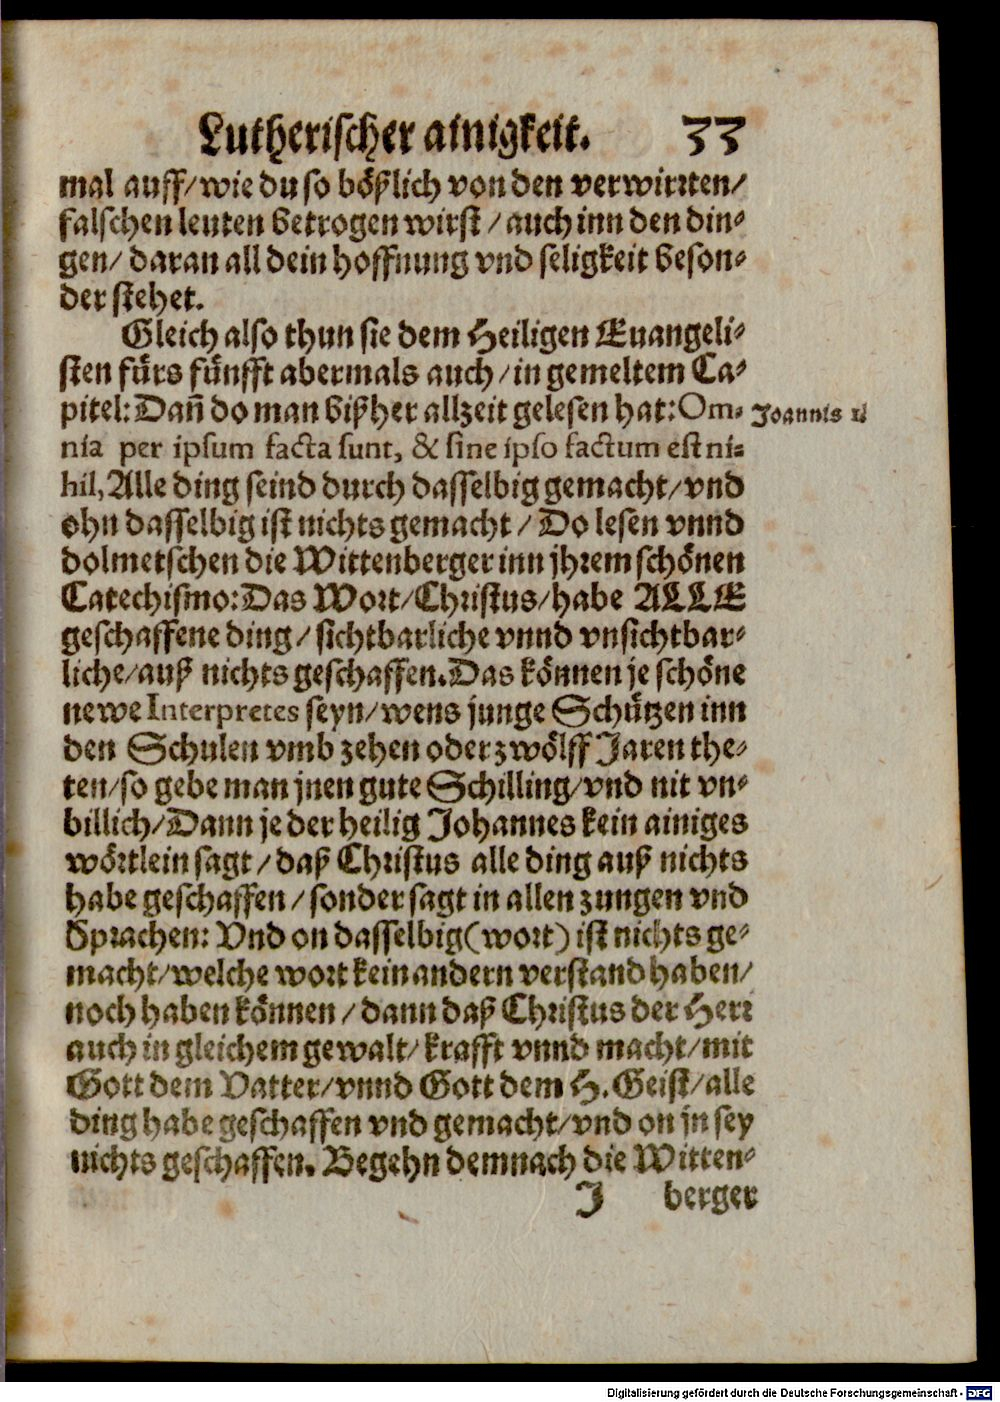 Lutherischer ainigkeit. 33
mal auff/ wie du so bößlich von den verwirrten/
falschen leuten betrogen wirst / auch inn den din-
gen/ daran all dein hoffnung vnd seligkeit beson-
der stehet.
Gleich also thun sie dem Heiligen Euangeli-
sten fürs fünfft abermals auch/ in gemeltem Ca-
pitel: Dañ do man bißher allzeit gelesen hat: Om-
Joannis
nia per ipsum facta sunt, & sine ipso factum est ni-
hil, Alle ding seind durch dasselbig gemacht/ vnd
ohn dasselbig ist nichts gemacht / Do lesen vnnd
dolmetschen die Wittenberger inn jhrem schönen
Catechismo: Das Wort/ Christus/ habe ALLE
geschaffene ding/ sichtbarliche vnnd vnsichtbar-
liche/ auß nichts geschaffen. Das können je schöne
newe Interpretes seyn/ wens junge Schützen inn
den Schulen vmb zehen oder zwölff Jaren the-
ten/ so gebe man jnen gute Schilling/ vnd nit vn-
billich/ Dann je der heilig Johannes kein ainiges
wörtlein sagt / daß Christus alle ding auß nichts
habe geschaffen / sonder sagt in allen zungen vnd
Sprachen: Vnd on dasselbig (wort) ist nichts ge-
macht/ welche wort kein andern verstand haben/
noch haben können / dann daß Christus der Herr
auch in gleichem gewalt/ krafft vnnd macht/ mit
Gott dem Vatter/ vnnd Gott dem H. Geist/ alle
ding habe geschaffen vnd gemacht/ vnd on jn sey
nichts geschaffen. Begehn demnach die Witten-
J berger
Digitalisierung gefördert durch die Deutsche Forschungsgemeinschaft - DFG